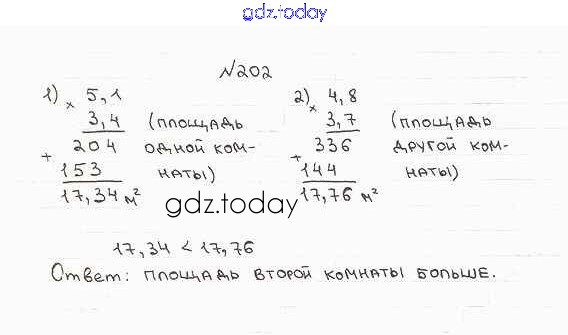 gdz.today
№202
1) × 5,1
3,4 (площадь
204 одной ком-
+
153 наты)
17,34 м²
2) × 4,8
3,7 (площадь
336 другой ком-
+
144 наты)
17,76 м²
gdz.today
17,34 < 17,76
Ответ: площадь второй комнаты больше.